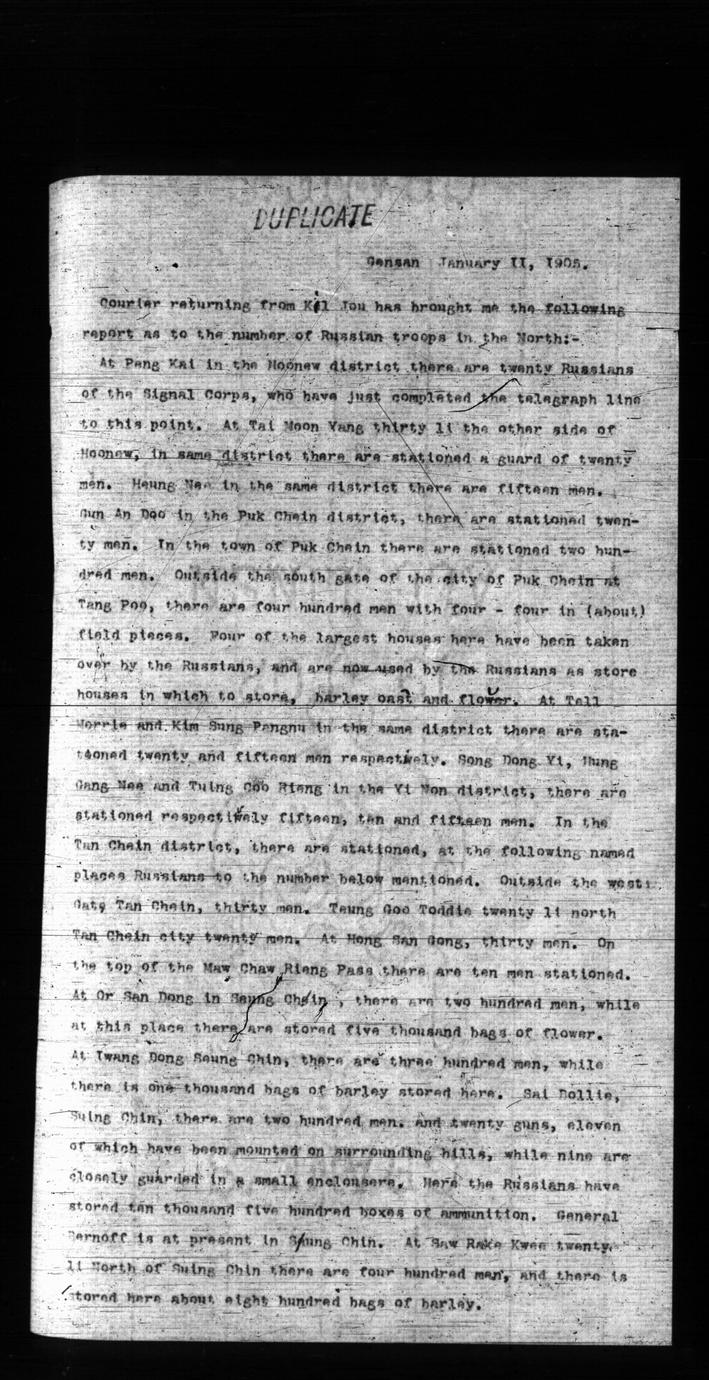 DUPLICATE
Gensan January II, 1905.
Courier returning from Kil Jou has brought me the following
report as to the number of Russian troops in the North:-
At Peng Kai in the Hoonew district there are twenty Russians
of the Signal Corps, who have just completed the telegraph line
to this point. At Tai Moon Yang thirty li the other side of
Hoonew, in same district there are stationed a guard of twenty
men. Heung Nee in the same district there are fifteen men.
Gun An Doo in the Puk Chein district, there are stationed twen-
ty men. In the town of Puk Chein there are stationed two hun-
dred men. Outside the south gate of the city of Puk Chein at
Tang Poo, there are four hundred men with four - four in (about)
field pieces. Four of the largest houses here have been taken
over by the Russians, and are now used by the Russians as store
houses in which to store, barley oast and flower. At Tell
Morrie and Kim Sung Pangnu in the same district there are sta-
tioned twenty and fifteen men respectively. Song Dong Yi, Hung
Gang Nee and Tuing Coo Rieng in the Yi Won district, there are
stationed respectively fifteen, ten and fifteen men. In the
Tan Chein district, there are stationed, at the following named
places Russians to the number below mentioned. Outside the west
Gate Tan Chein, thirty men. Teung Goo Toddie twenty li north
Tan Chein city twenty men. At Hong San Gong, thirty men. On
the top of the Maw Chaw Rieng Pass there are ten men stationed.
At Or San Dong in Seung Chein, there are two hundred men, while
at this place there are stored five thousand bags of flower.
At Iwang Dong Seung Chin, there are three hundred men, while
there is one thousand bags of barley stored here. Sai Dollie,
Suing Chin, there are two hundred men. and twenty guns, eleven
of which have been mounted on surrounding hills, while nine are
closely guarded in a small enclousere. Here the Russians have
stored ten thousand five hundred boxes of ammunition. General
Bernoff is at present in Seung Chin. At Saw Rake Kwee twenty
li North of Suing Chin there are four hundred men, and there is
stored here about eight hundred bags of barley.